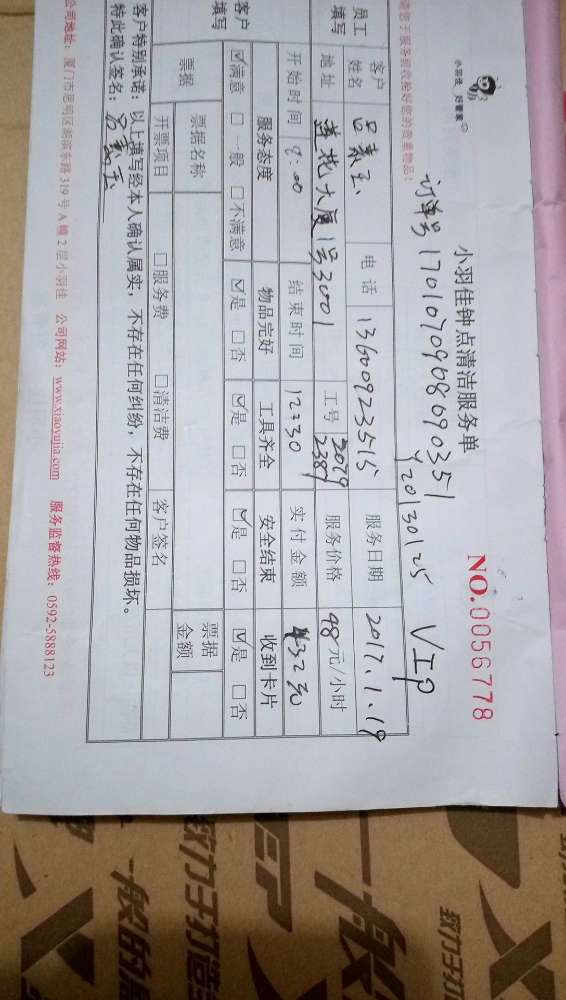 小羽佳 好管家
小羽佳钟点清洁服务单
NO.0056778
订单号 1701070908690351
Y20130125 VIP
请您于服务前收捡好您的贵重物品:
员工填写
客户姓名 电话 13600923515 服务日期 2017.1.19
地址 莲花大厦1号3001 工号 2079 2387 服务价格 98元/小时
开始时间 9:00 结束时间 12:30 实付金额 432元
客户填写
服务态度 物品完好 工具齐全 安全结束 收到卡片
☑满意 □一般 □不满意 ☑是 □否 ☑是 □否 ☑是 □否 ☑是 □否
票据 票据名称 票据金额
开票项目 □服务费 □清洁费 客户签名
客户特别承诺:以上填写经本人确认属实,不存在任何纠纷,不存在任何物品损坏。
特此确认签名:
公司地址:厦门市思明区湖滨东路319号A幢2层小羽佳 公司网站:www.xiaoyujia.com 服务监督热线:0592-5888123
一般的
致力于打造
致力于打